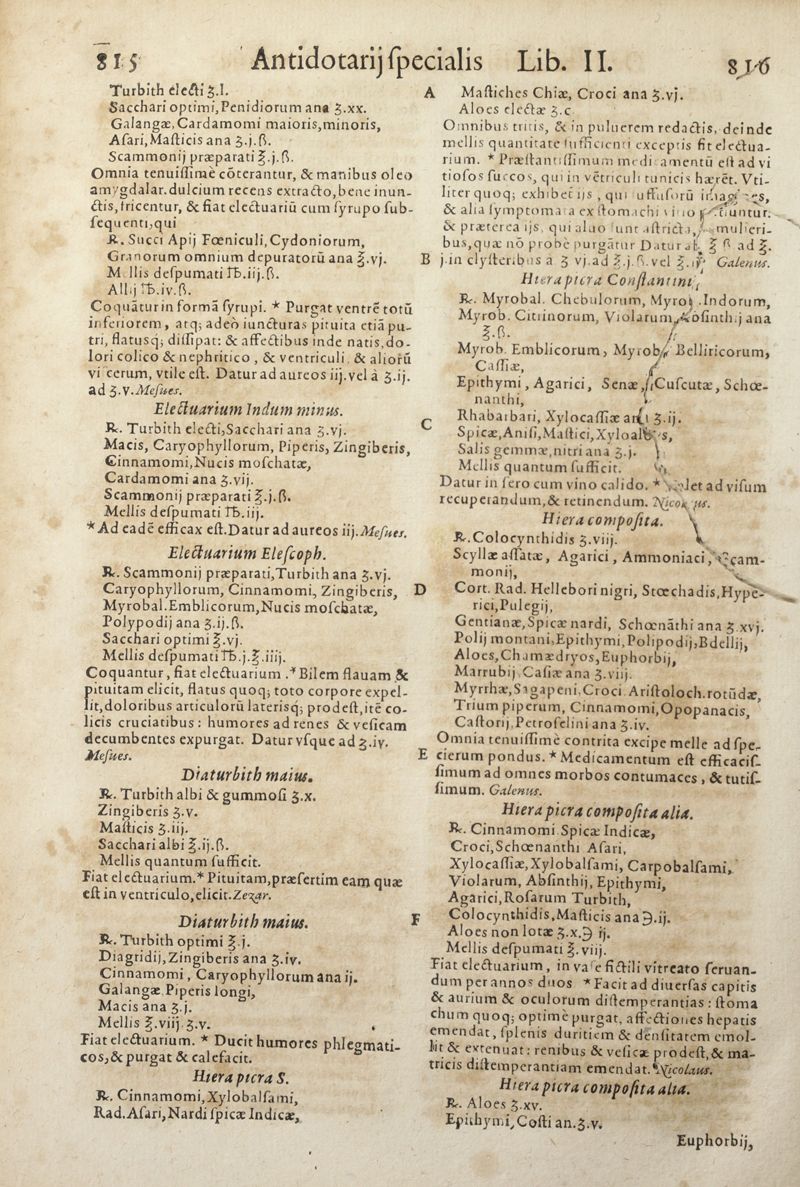 815 Antidotarij ſpecialis Lib. II. 816
Turbith electi ʒ.I.
Sacchari optimi, Penidiorum ana ʒ.xx.
Galangæ, Cardamomi maioris, minoris,
Aſari, Maſticis ana ʒ.j.ß.
Scammonij præparati ℥.j.ß.
Omnia tenuiſſimè cōterantur, & manibus oleo
amygdalar. dulcium recens extracto, bene inun-
ctis, fricentur, & fiat electuariū cum ſyrupo ſub-
ſequenti, qui
℞. Succi Apij Fœniculi, Cydoniorum,
Granorum omnium depuratorū ana ℥.vj.
Mellis deſpumati ℔.iij.ß.
Allij ℔.iv.ß.
Coquātur in formā ſyrupi. * Purgat ventrē totū
inferiorem, atq; adeò iuncturas pituita etiā pu-
tri, flatusq; diſſipat: & affectibus inde natis, do-
lori colico & nephritico, & ventriculi & aliorū
viscerum, vtile eſt. Datur ad aureos iij. vel à ʒ.ij.
ad ʒ.v. Meſues.
Electuarium Indum minus.
℞. Turbith electi, Sacchari ana ʒ.vj.
Macis, Caryophyllorum, Piperis, Zingiberis,
Cinnamomi, Nucis moſchatæ,
Cardamomi ana ʒ.vij.
Scammonij præparati ℥.j.ß.
Mellis deſpumati ℔.iij.
* Ad eadē efficax eſt. Datur ad aureos iij. Meſues.
Electuarium Eleſcoph.
℞. Scammonij præparati, Turbith ana ʒ.vj.
Caryophyllorum, Cinnamomi, Zingiberis,
Myrobal. Emblicorum, Nucis moſchatæ,
Polypodij ana ʒ.ij.ß.
Sacchari optimi ℥.vj.
Mellis deſpumati ℔.j.℥.iiij.
Coquantur, fiat electuarium. * Bilem flauam &
pituitam elicit, flatus quoq; toto corpore expel-
lit, doloribus articulorū laterisq; prodeſt, itē co-
licis cruciatibus: humores ad renes & veſicam
decumbentes expurgat. Datur vſque ad ʒ.iv.
Meſues.
Diaturbith maius.
℞. Turbith albi & gummoſi ʒ.x.
Zingiberis ʒ.v.
Maſticis ʒ.iij.
Sacchari albi ℥.ij.ß.
Mellis quantum ſufficit.
Fiat electuarium. * Pituitam, præſertim eam quæ
eſt in ventriculo, elicit. Zezar.
Diaturbith maius.
℞. Turbith optimi ℥.j.
Diagridij, Zingiberis ana ʒ.iv.
Cinnamomi, Caryophyllorum ana ij.
Galangæ. Piperis longi,
Macis ana ʒ.j.
Mellis ℥.viij. ʒ.v.
Fiat electuarium. * Ducit humores phlegmati-
cos, & purgat & calefacit.
Hiera picra S.
℞. Cinnamomi, Xylobalſami,
Rad. Aſari, Nardi ſpicæ Indicæ,
A Maſtiches Chiæ, Croci ana ʒ.vj.
Aloes electæ ʒ.c
Omnibus tritis, & in puluerem redactis, deinde
mellis quantitate ſufficienti exceptis fit electua-
rium. * Præſtantiſſimum medicamentū eſt ad vi
tioſos ſuccos, qui in vētriculi tunicis hærēt. Vti-
liter quoq; exhibet ijs, qui
& alia ſymptomata ex ſtomachi
& præterea ijs, qui aluo ſunt aſtricta, mulieri-
bus, quæ nō probè purgātur Datur ℥ ß ad ℥.
B j. in clyſteribus a ʒ vj. ad ℥.j.ß. vel Galenus.
Hiera picra Conſtantini
℞. Myrobal. Chebulorum, Indorum,
Myrob. Citrinorum, Violarum, ana
℥.ß.
Myrob. Emblicorum, Myrob. Belliricorum,
Caſſiæ,
Epithymi, Agarici, Senæ, Cuſcutæ, Schœ-
nanthi,
Rhabarbari, Xylocaſſiæ ana ʒ.ij.
C Spicæ, Aniſi, Maſtici,
Salis gemmæ, nitri ana ʒ.j.
Mellis quantum ſufficit.
Datur in ſero cum vino calido. * ad viſum
recuperandum, & retinendum.
Hiera compoſita.
℞. Colocynthidis ʒ.viij.
Scyllæ aſſatæ, Agarici, Ammoniaci, Scam-
monij,
D Cort. Rad. Hellebori nigri, Stœchadis, Hype-
rici, Pulegij,
Gentianæ, Spicæ nardi, Schœnāthi ana ʒ.xvj.
Polij montani, Epithymi, Polipodij, Bdellij,
Aloes, Chamædryos, Euphorbij,
Marrubij, Caſiæ ana ʒ.viij.
Myrrhæ, Sagapeni, Croci Ariſtoloch. rotūdæ,
Trium piperum, Cinnamomi, Opopanacis,
Caſtorij, Petroſelini ana ʒ.iv.
Omnia tenuiſſimè contrita excipe melle ad ſpe-
E cierum pondus. * Medicamentum eſt efficaciſ-
ſimum ad omnes morbos contumaces, & tutiſ-
ſimum. Galenus.
Hiera picra compoſita alia.
℞. Cinnamomi Spicæ Indicæ,
Croci, Schœnanthi Aſari,
Xylocaſſiæ, Xylobalſami, Carpobalſami,
Violarum, Abſinthij, Epithymi,
Agarici, Roſarum Turbith,
F Colocynthidis, Maſticis ana ℈.ij.
Aloes non lotæ ʒ.x.℈ ij.
Mellis deſpumati ℥.viij.
Fiat electuarium, in vaſe fictili vitreato ſeruan-
dum per annos duos * Facit ad diuerſas capitis
& aurium & oculorum diſtemperantias: ſtoma
chum quoq; optimè purgat, affectiones hepatis
emendat, ſplenis duritiem & denſitatem emol-
lit & extenuat: renibus & veſicæ prodeſt, & ma-
tricis diſtemperantiam emendat. Nicolaus.
Hiera picra compoſita alia.
℞. Aloes ʒ.xv.
Epithymi, Coſti an. ʒ.v.
Euphorbij,